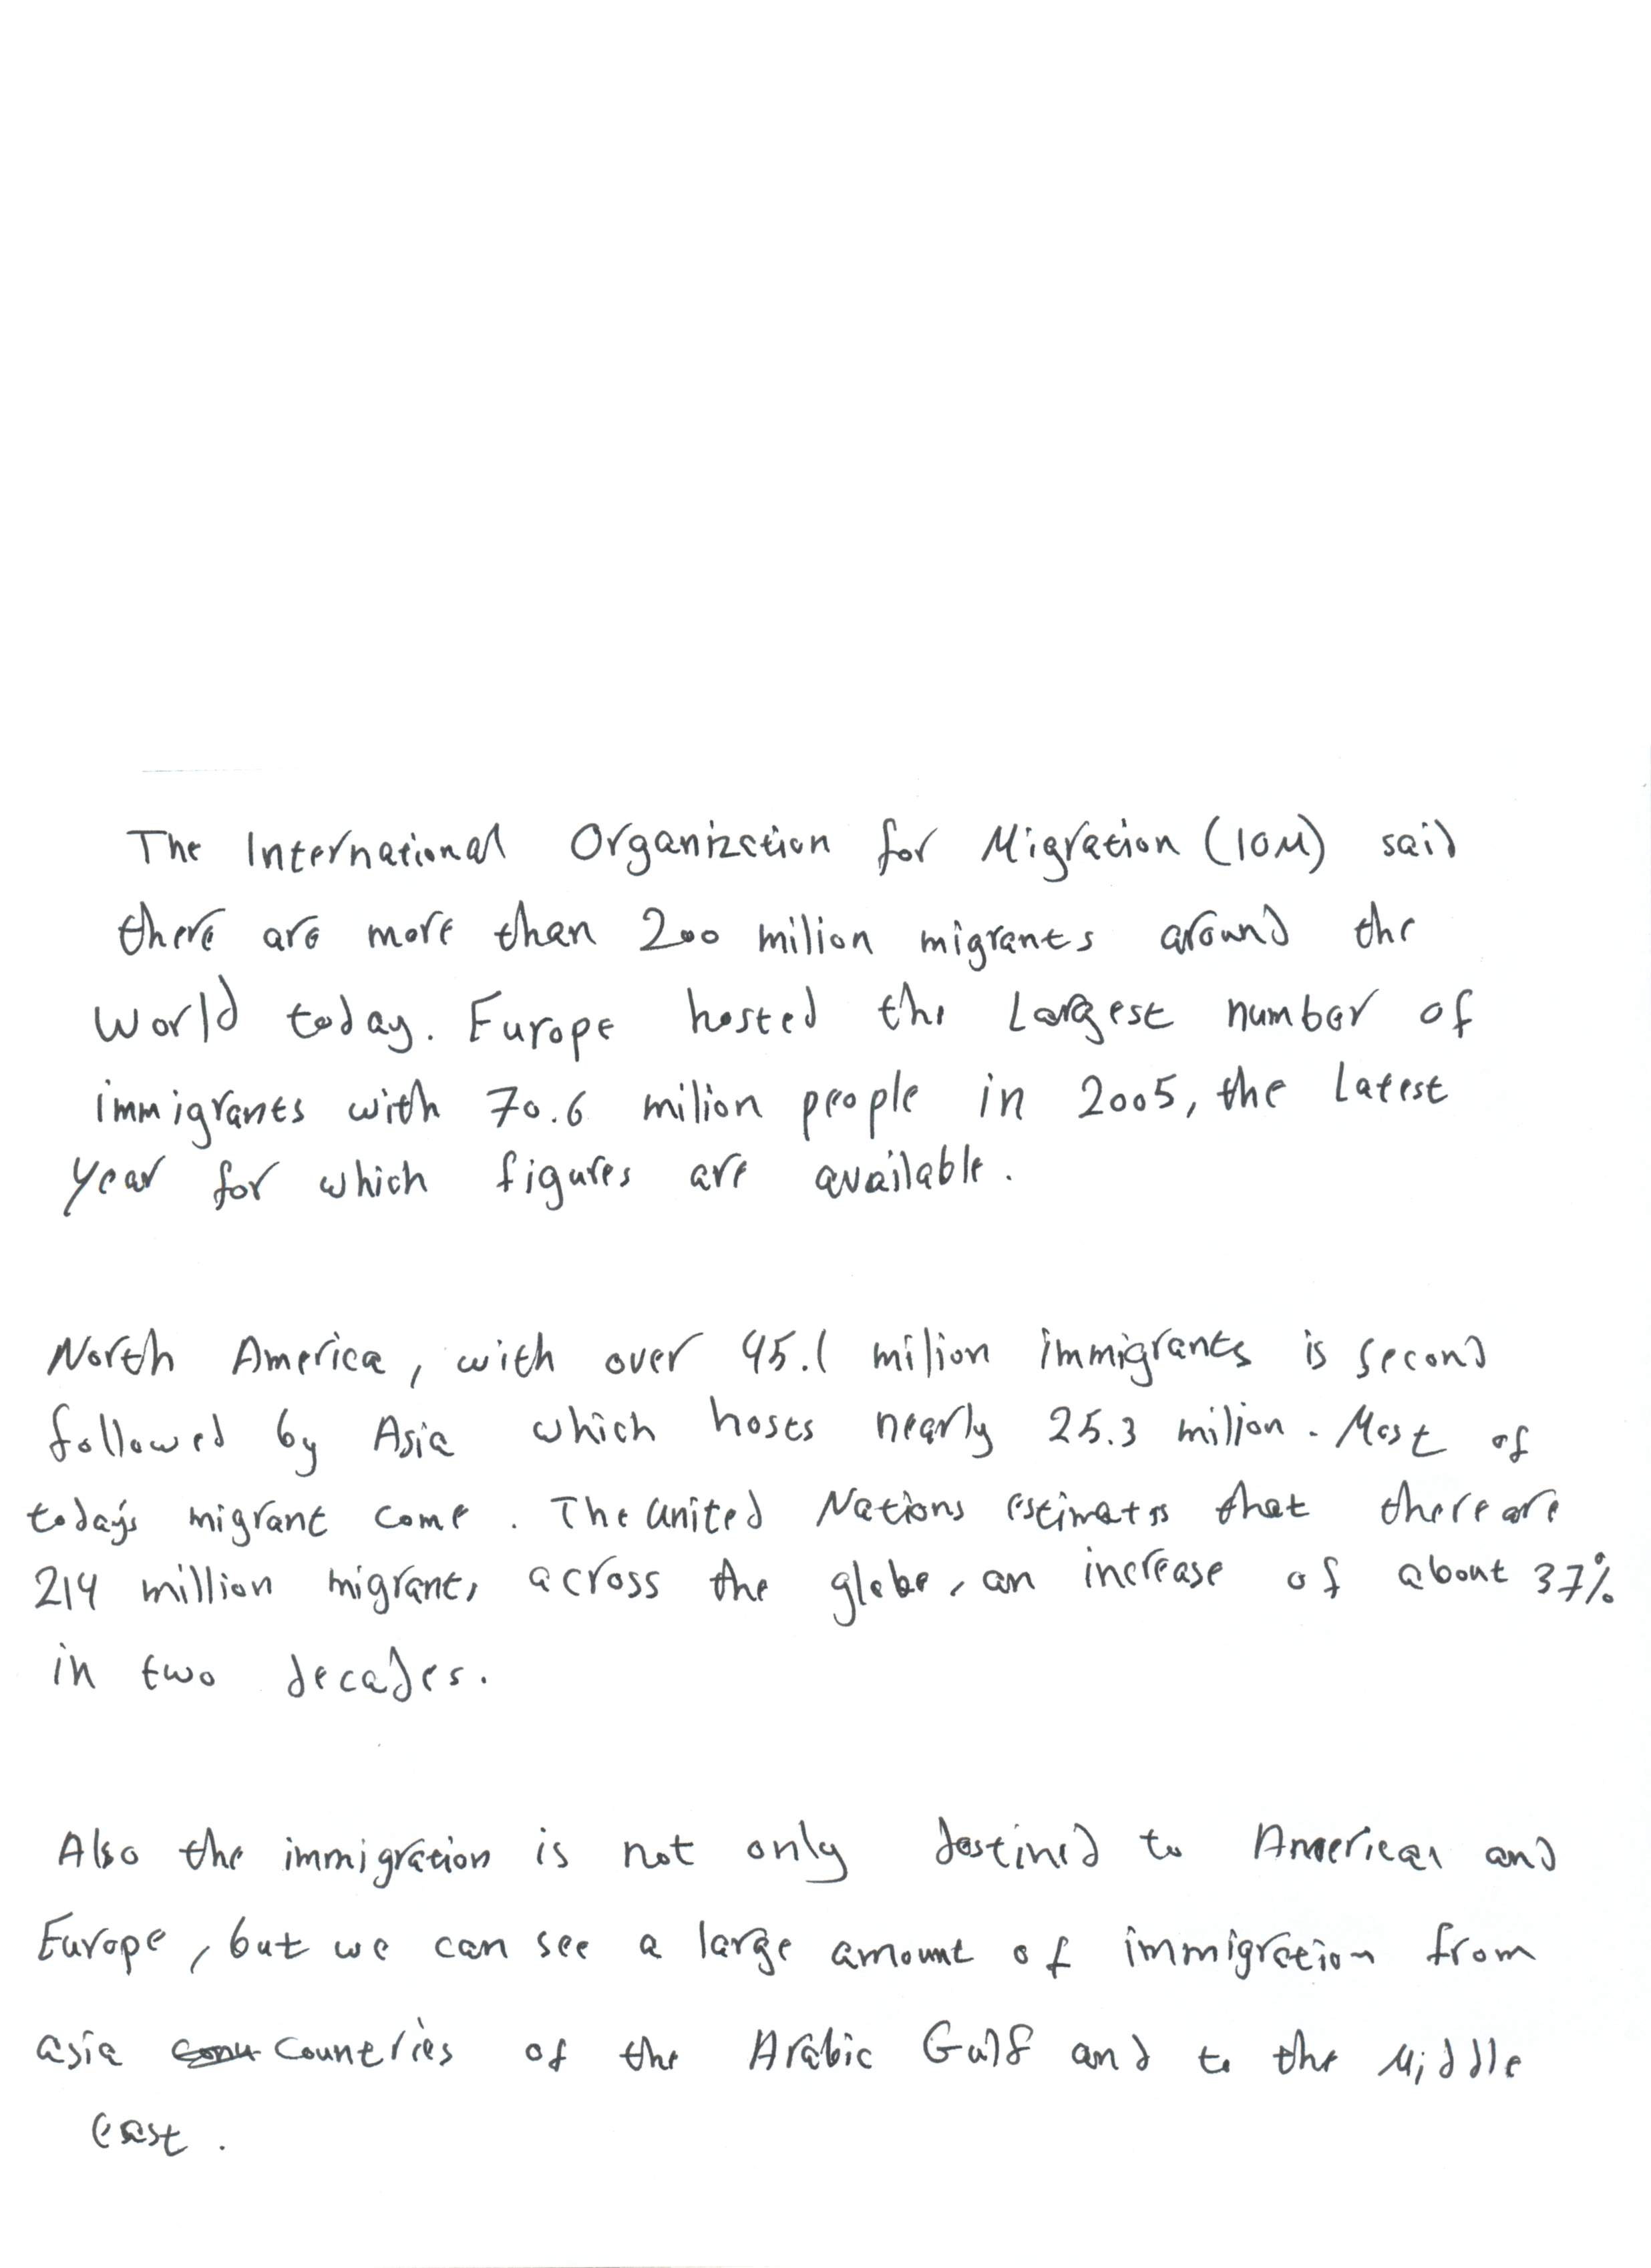 The International Organization for Migration (IOM) said
there are more than 200 milion migrants around the
World today. Europe hosted the Largest number of
immigrants with 70.6 milion people in 2005, the Latest
year for which figures are available.
North America, with over 45.1 milion immigrants is second
followed by Asia which hosts nearly 25.3 milion. Most of
today's migrant come. The United Nations estimates that there are
214 million migrants across the globe, an increase of about 37%
in two decades.
Also the immigration is not only destined to American and
Europe, but we can see a large amount of immigration from
asia countries of the Arabic Gulf and to the Middle
east.